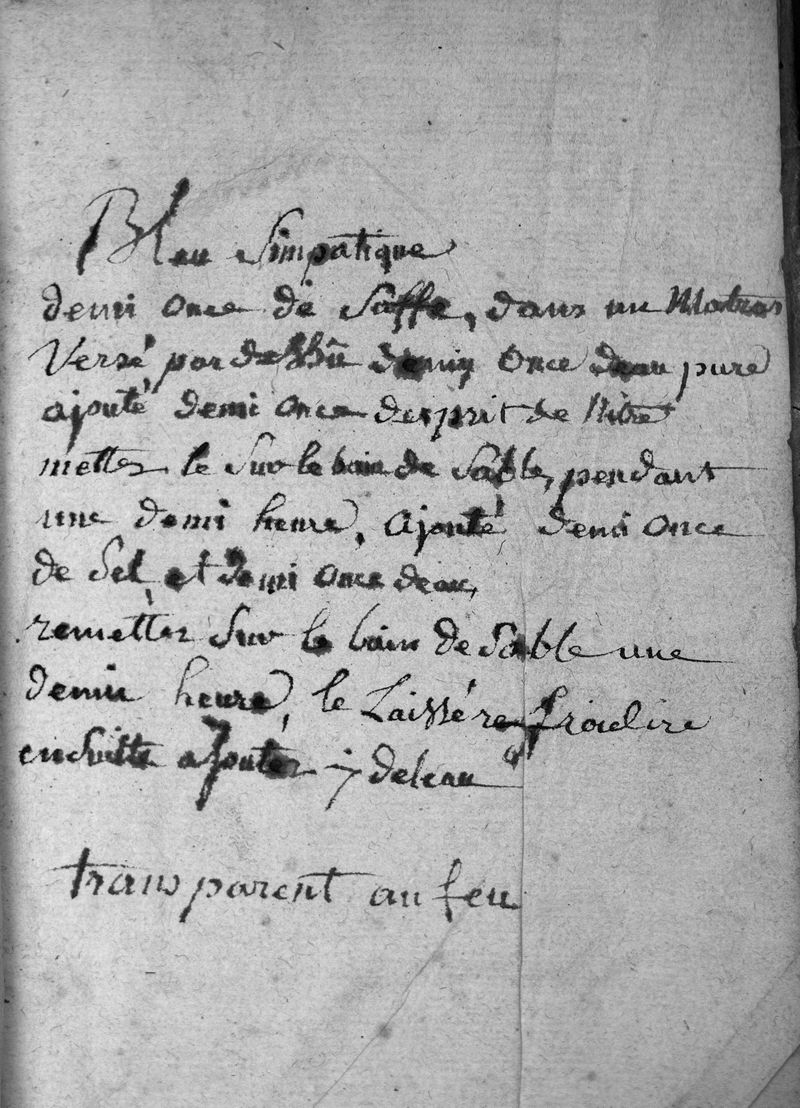 Bleu Simpatique
demi once de Saffe, dans un Matras
Versé par dessû demin once deau pure
ajouté demi once desprit de Nitre
metter le Sur le bain de Sable, pendant
une demi heure, ajouté demi once
de Sel, et demi once deau,
remetter Sur le bain de Sable une
demin heure, le Laissére froidire
ensuitte ajouter y deleau
transparent au feu